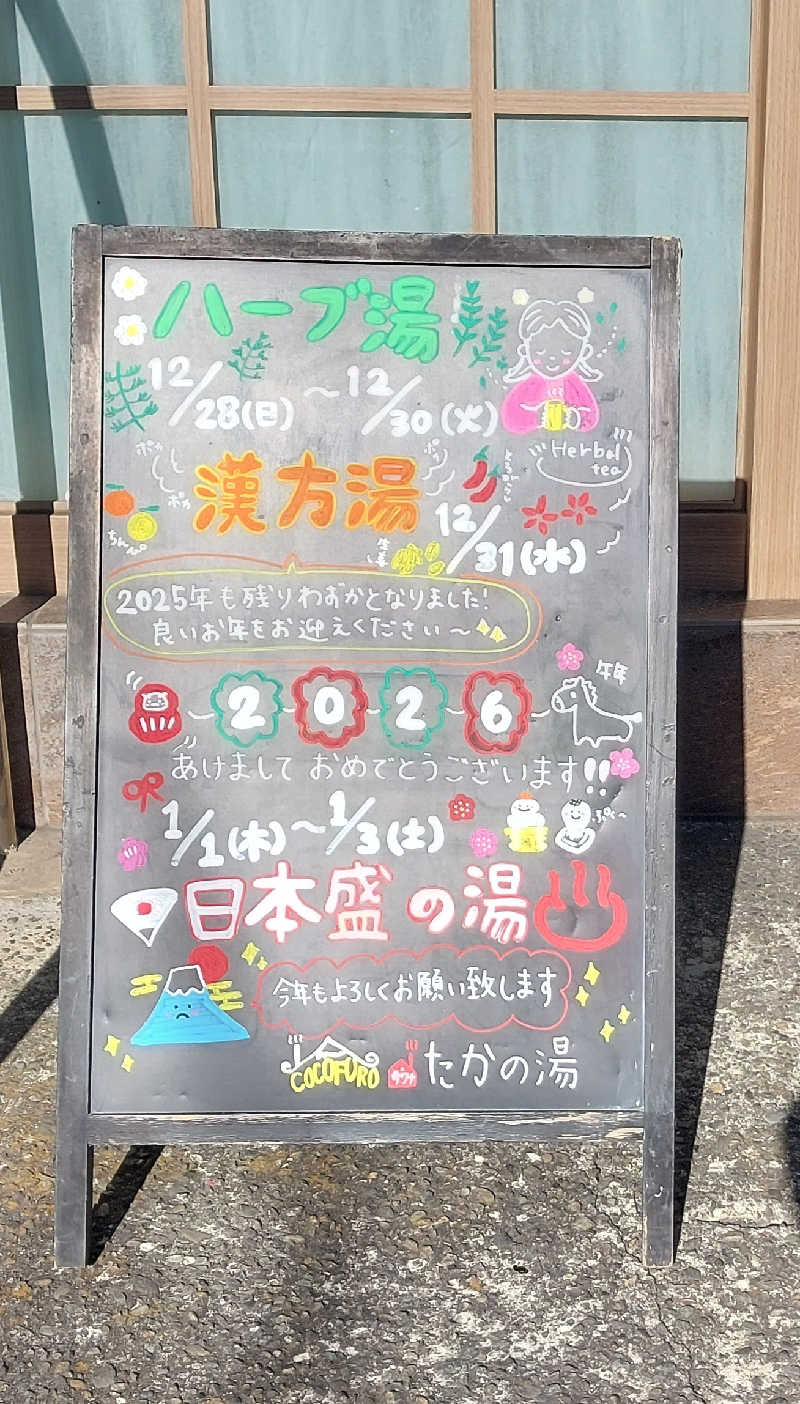 ハーブ湯
12/28(日)～12/30(火)
Herbal tea
ポカ ポカ
ポカ
漢方湯
とうがらし
12/31(水)
ちんぴ
生姜
2025年も残りわずかとなりました!
良いお年をお迎えください～
2026
午年
あけまして おめでとうございます!!
1/1(木)～1/3(土)
ぷく～
日本盛の湯
今年もよろしくお願い致します
COCOFURO サウナ たかの湯